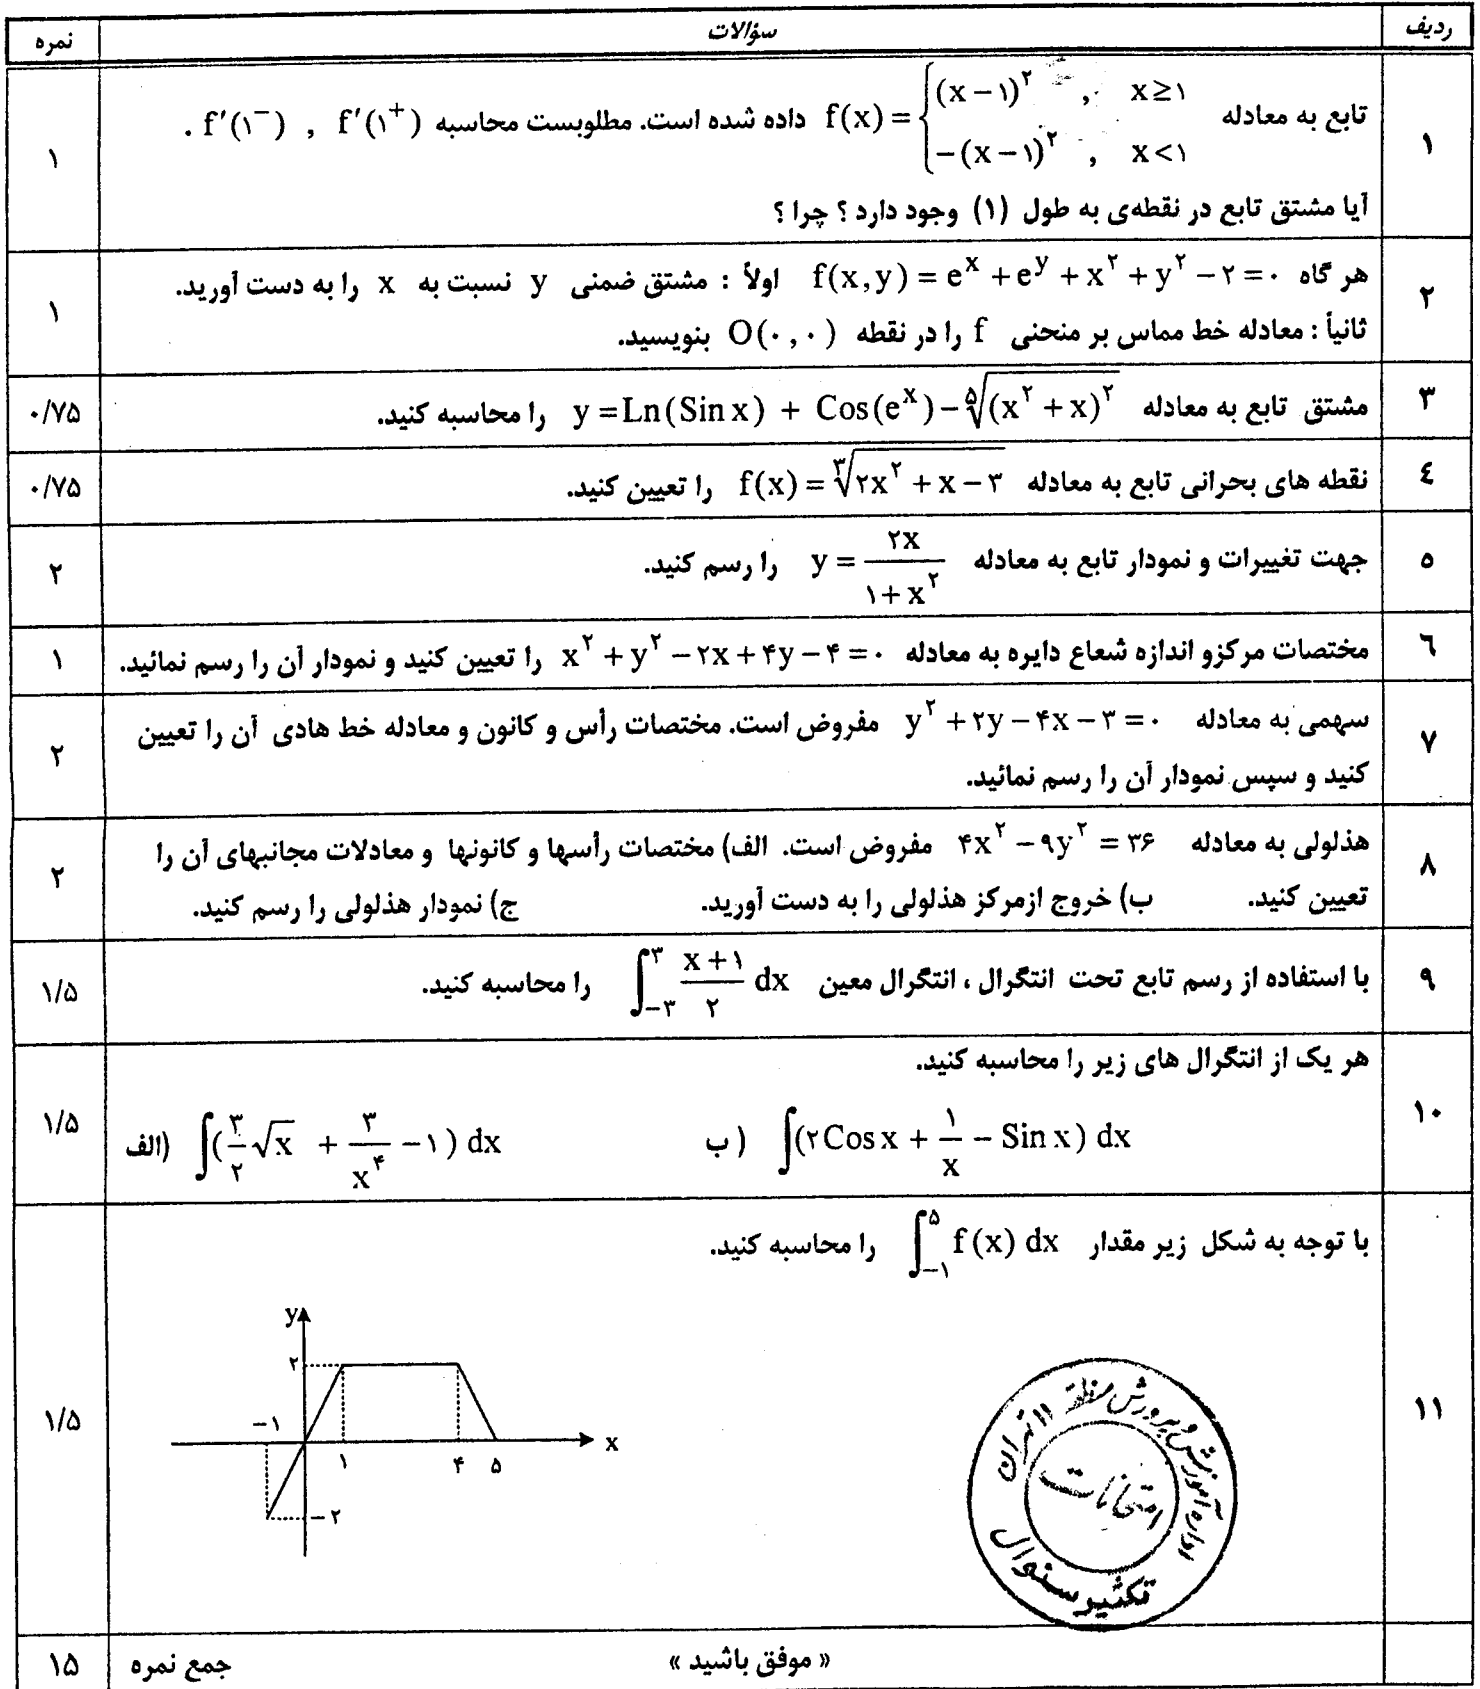 ردیف سؤالات نمره
۱ تابع به معادله f(x) = { (x − ۱)^۲ , x ≥ ۱ ; −(x − ۱)^۲ , x < ۱ داده شده است. مطلوبست محاسبه f′(۱⁺) , f′(۱⁻) . ۱
آیا مشتق تابع در نقطه‌ی به طول (۱) وجود دارد ؟ چرا ؟
۲ هر گاه f(x,y) = e^x + e^y + x^۲ + y^۲ − ۲ = ۰ اولاً : مشتق ضمنی y نسبت به x را به دست آورید. ۱
ثانیاً : معادله خط مماس بر منحنی f را در نقطه O(۰,۰) بنویسید.
۳ مشتق تابع به معادله y = Ln(Sin x) + Cos(e^x) − ⁵√(x^۲ + x)^۲ را محاسبه کنید. ۰/۷۵
٤ نقطه های بحرانی تابع به معادله f(x) = ³√(۲x^۲ + x − ۳) را تعیین کنید. ۰/۷۵
٥ جهت تغییرات و نمودار تابع به معادله y = ۲x / (۱ + x^۲) را رسم کنید. ۲
٦ مختصات مرکزو اندازه شعاع دایره به معادله x^۲ + y^۲ − ۲x + ۴y − ۴ = ۰ را تعیین کنید و نمودار آن را رسم نمائید. ۱
۷ سهمی به معادله y^۲ + ۲y − ۴x − ۳ = ۰ مفروض است. مختصات رأس و کانون و معادله خط هادی آن را تعیین ۲
کنید و سپس نمودار آن را رسم نمائید.
۸ هذلولی به معادله ۴x^۲ − ۹y^۲ = ۳۶ مفروض است. الف) مختصات رأسها و کانونها و معادلات مجانبهای آن را ۲
تعیین کنید. ب) خروج ازمرکز هذلولی را به دست آورید. ج) نمودار هذلولی را رسم کنید.
۹ با استفاده از رسم تابع تحت انتگرال ، انتگرال معین ∫_{−۳}^{۳} (x + ۱)/۲ dx را محاسبه کنید. ۱/۵
۱۰ هر یک از انتگرال های زیر را محاسبه کنید. ۱/۵
الف) ∫(۳/۲ √x + ۳/x^۴ − ۱) dx ب) ∫(۲Cos x + ۱/x − Sin x) dx
۱۱ با توجه به شکل زیر مقدار ∫_{−۱}^{۵} f(x) dx را محاسبه کنید. ۱/۵
y
۲
−۱
x
۱ ۴ ۵
−۲
اداره آموزش و پرورش منطقه ۱۱ تهران
امتحانات
تکثیر سئوال
« موفق باشید » جمع نمره ۱۵